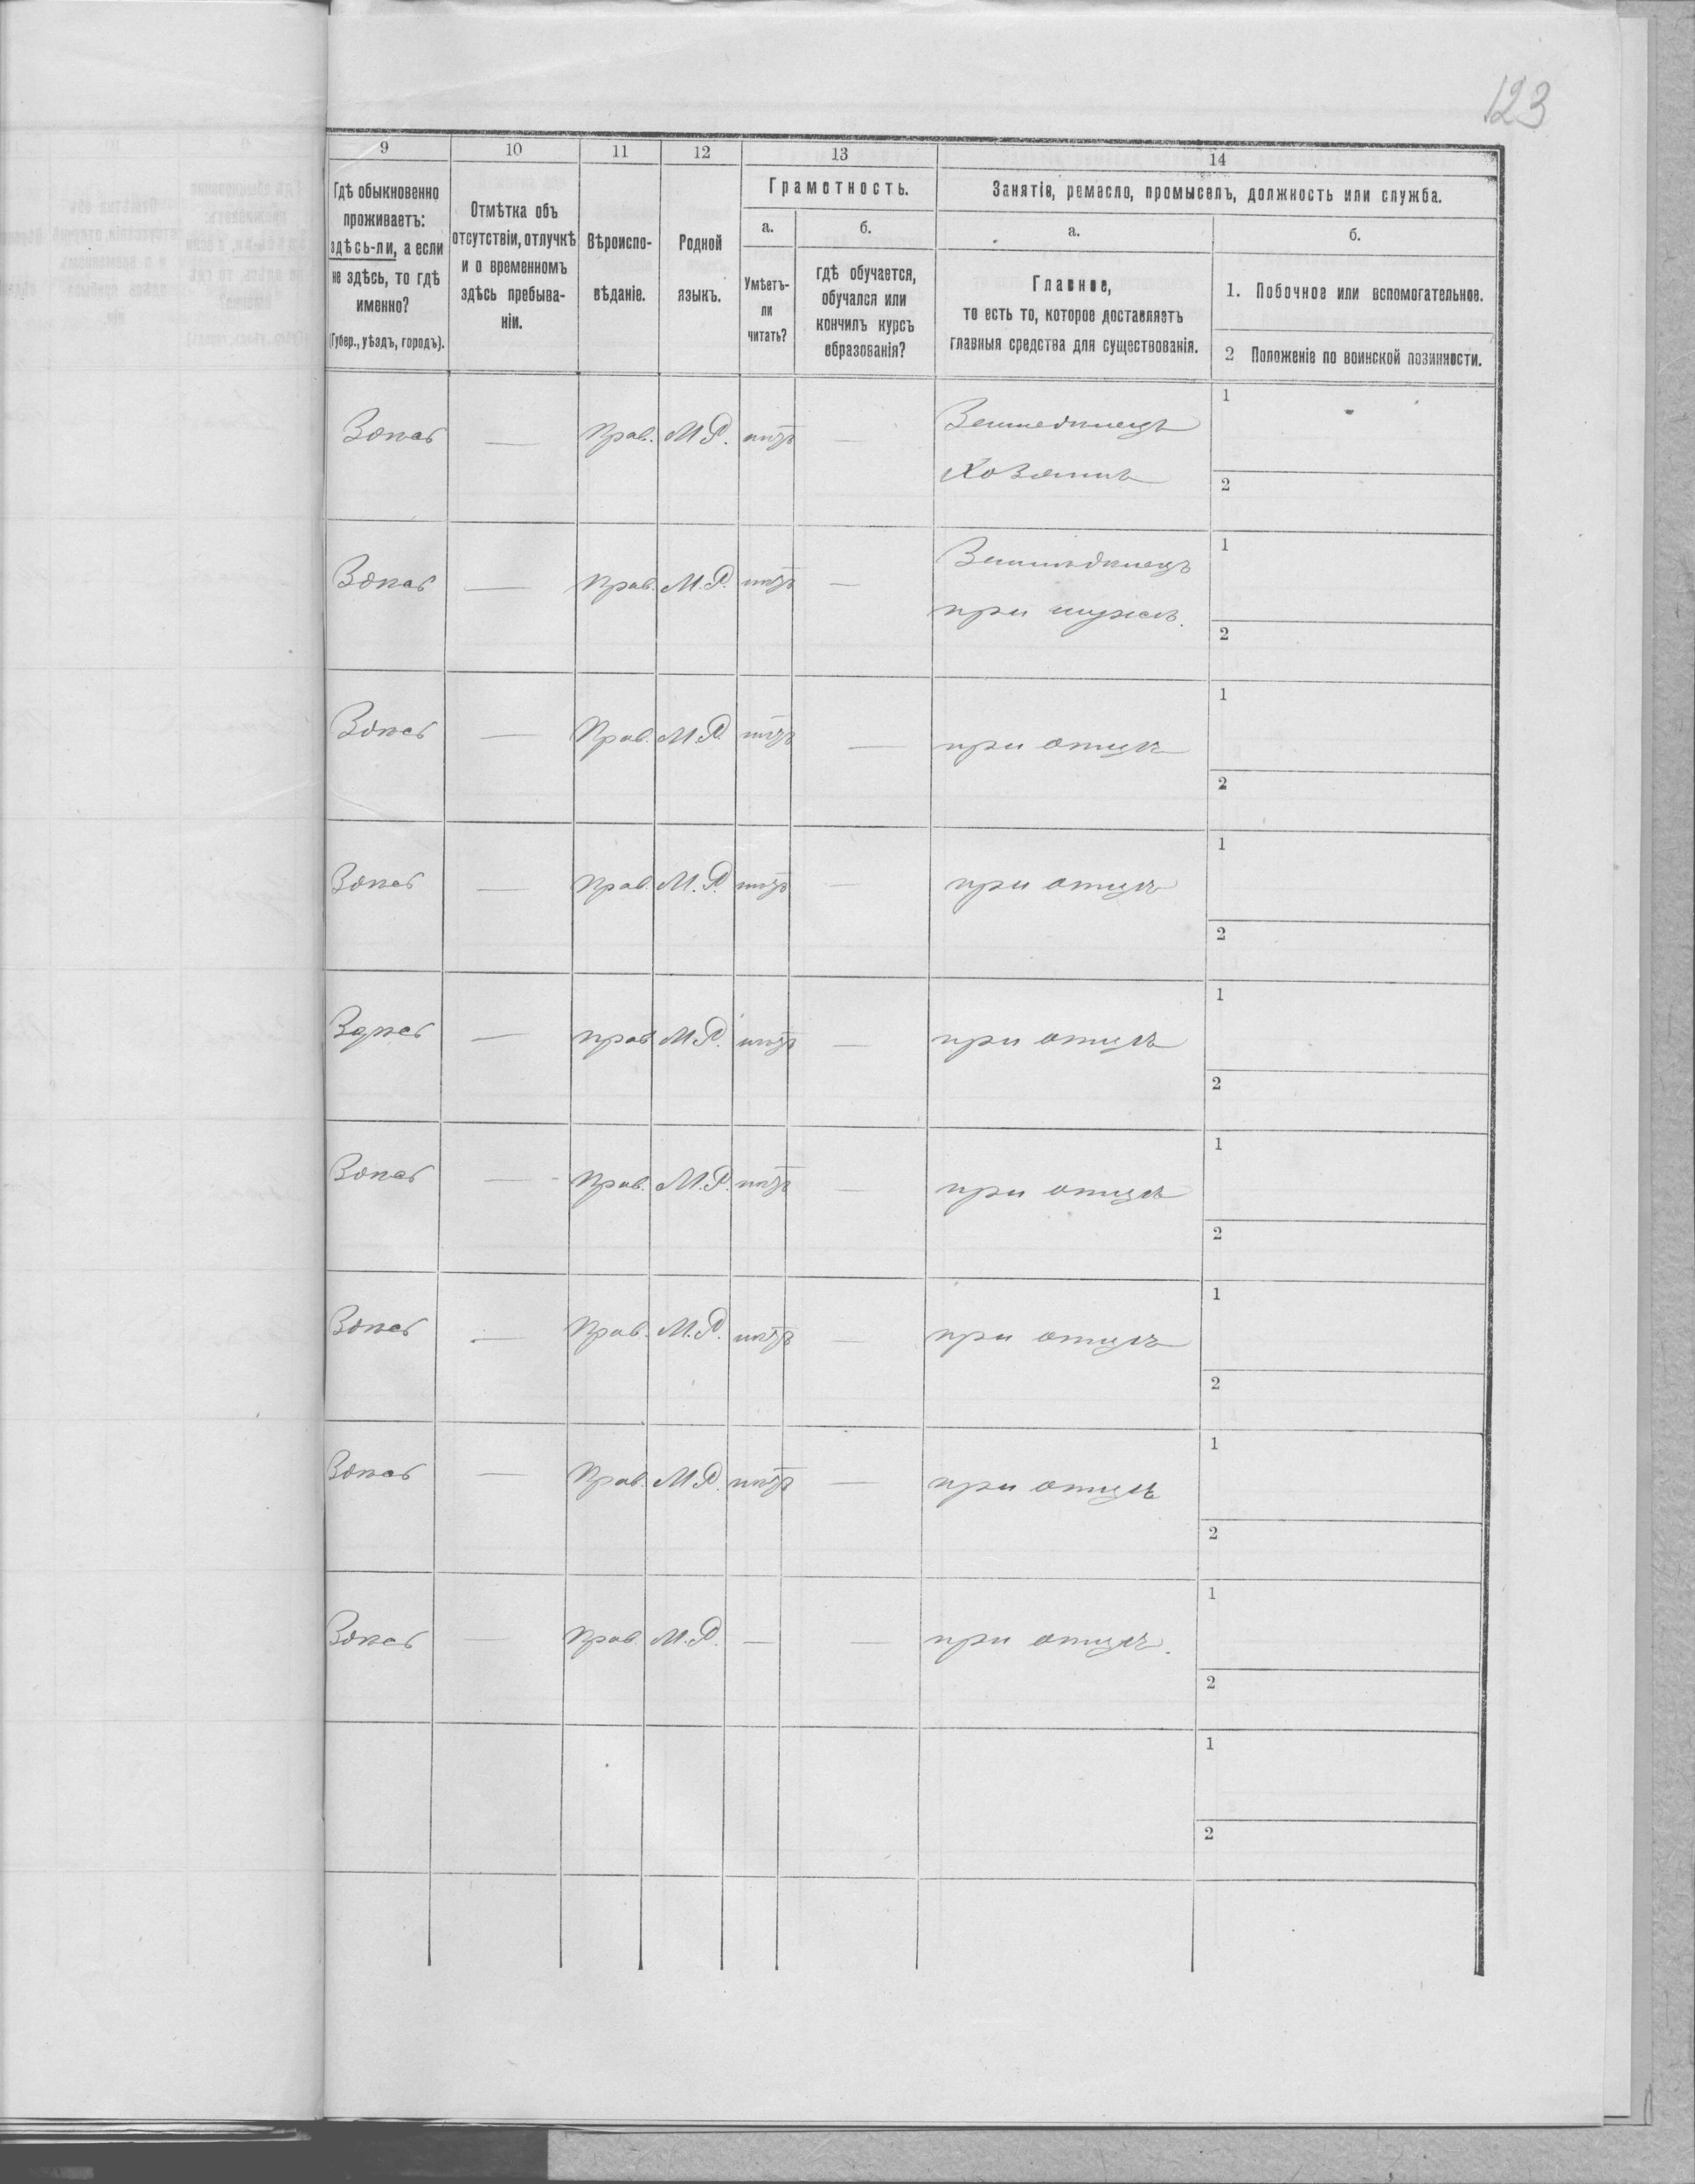 123
9 10 11 12 13 14
Гдѣ обыкновенно
проживаетъ:
здѣсь-ли, а если
не здѣсь, то гдѣ
именно?
(Губер., уѣздъ, городъ).
Отмѣтка объ
отсутствіи, отлучкѣ
и о временномъ
здѣсь пребыва-
ніи.
Вѣроиспо-
вѣданіе.
Родной
языкъ.
Грамотность.
а.
Умѣетъ-
ли
читать?
б.
гдѣ обучается,
обучался или
кончилъ курсъ
образованія?
Занятіе, ремесло, промыселъ, должность или служба.
а.
Главное,
то есть то, которое доставляетъ
главныя средства для существованія.
б.
1. Побочное или вспомогательное.
2 Положеніе по воинской повинности.
Здѣсь — Прав. М Р. нѣтъ — Земледѣлецъ
Хозяинъ
1
2
Здѣсь — Прав. М.Р. нѣтъ — Земледѣлецъ
при мужѣ.
1
2
Здѣсь — Прав. М.Р. нѣтъ — при отцѣ
1
2
Здѣсь — Прав. М.Р. нѣтъ — при отцѣ
1
2
Здѣсь — прав М.Р. нѣтъ — при отцѣ
1
2
Здѣсь — Прав. М.Р. нѣтъ — при отцѣ
1
2
Здѣсь — Прав. М.Р. нѣтъ — при отцѣ
1
2
Здѣсь — Прав. М.Р. нѣтъ — при отцѣ
1
2
Здѣсь — Прав. М.Р. — — при отцѣ.
1
2
1
2